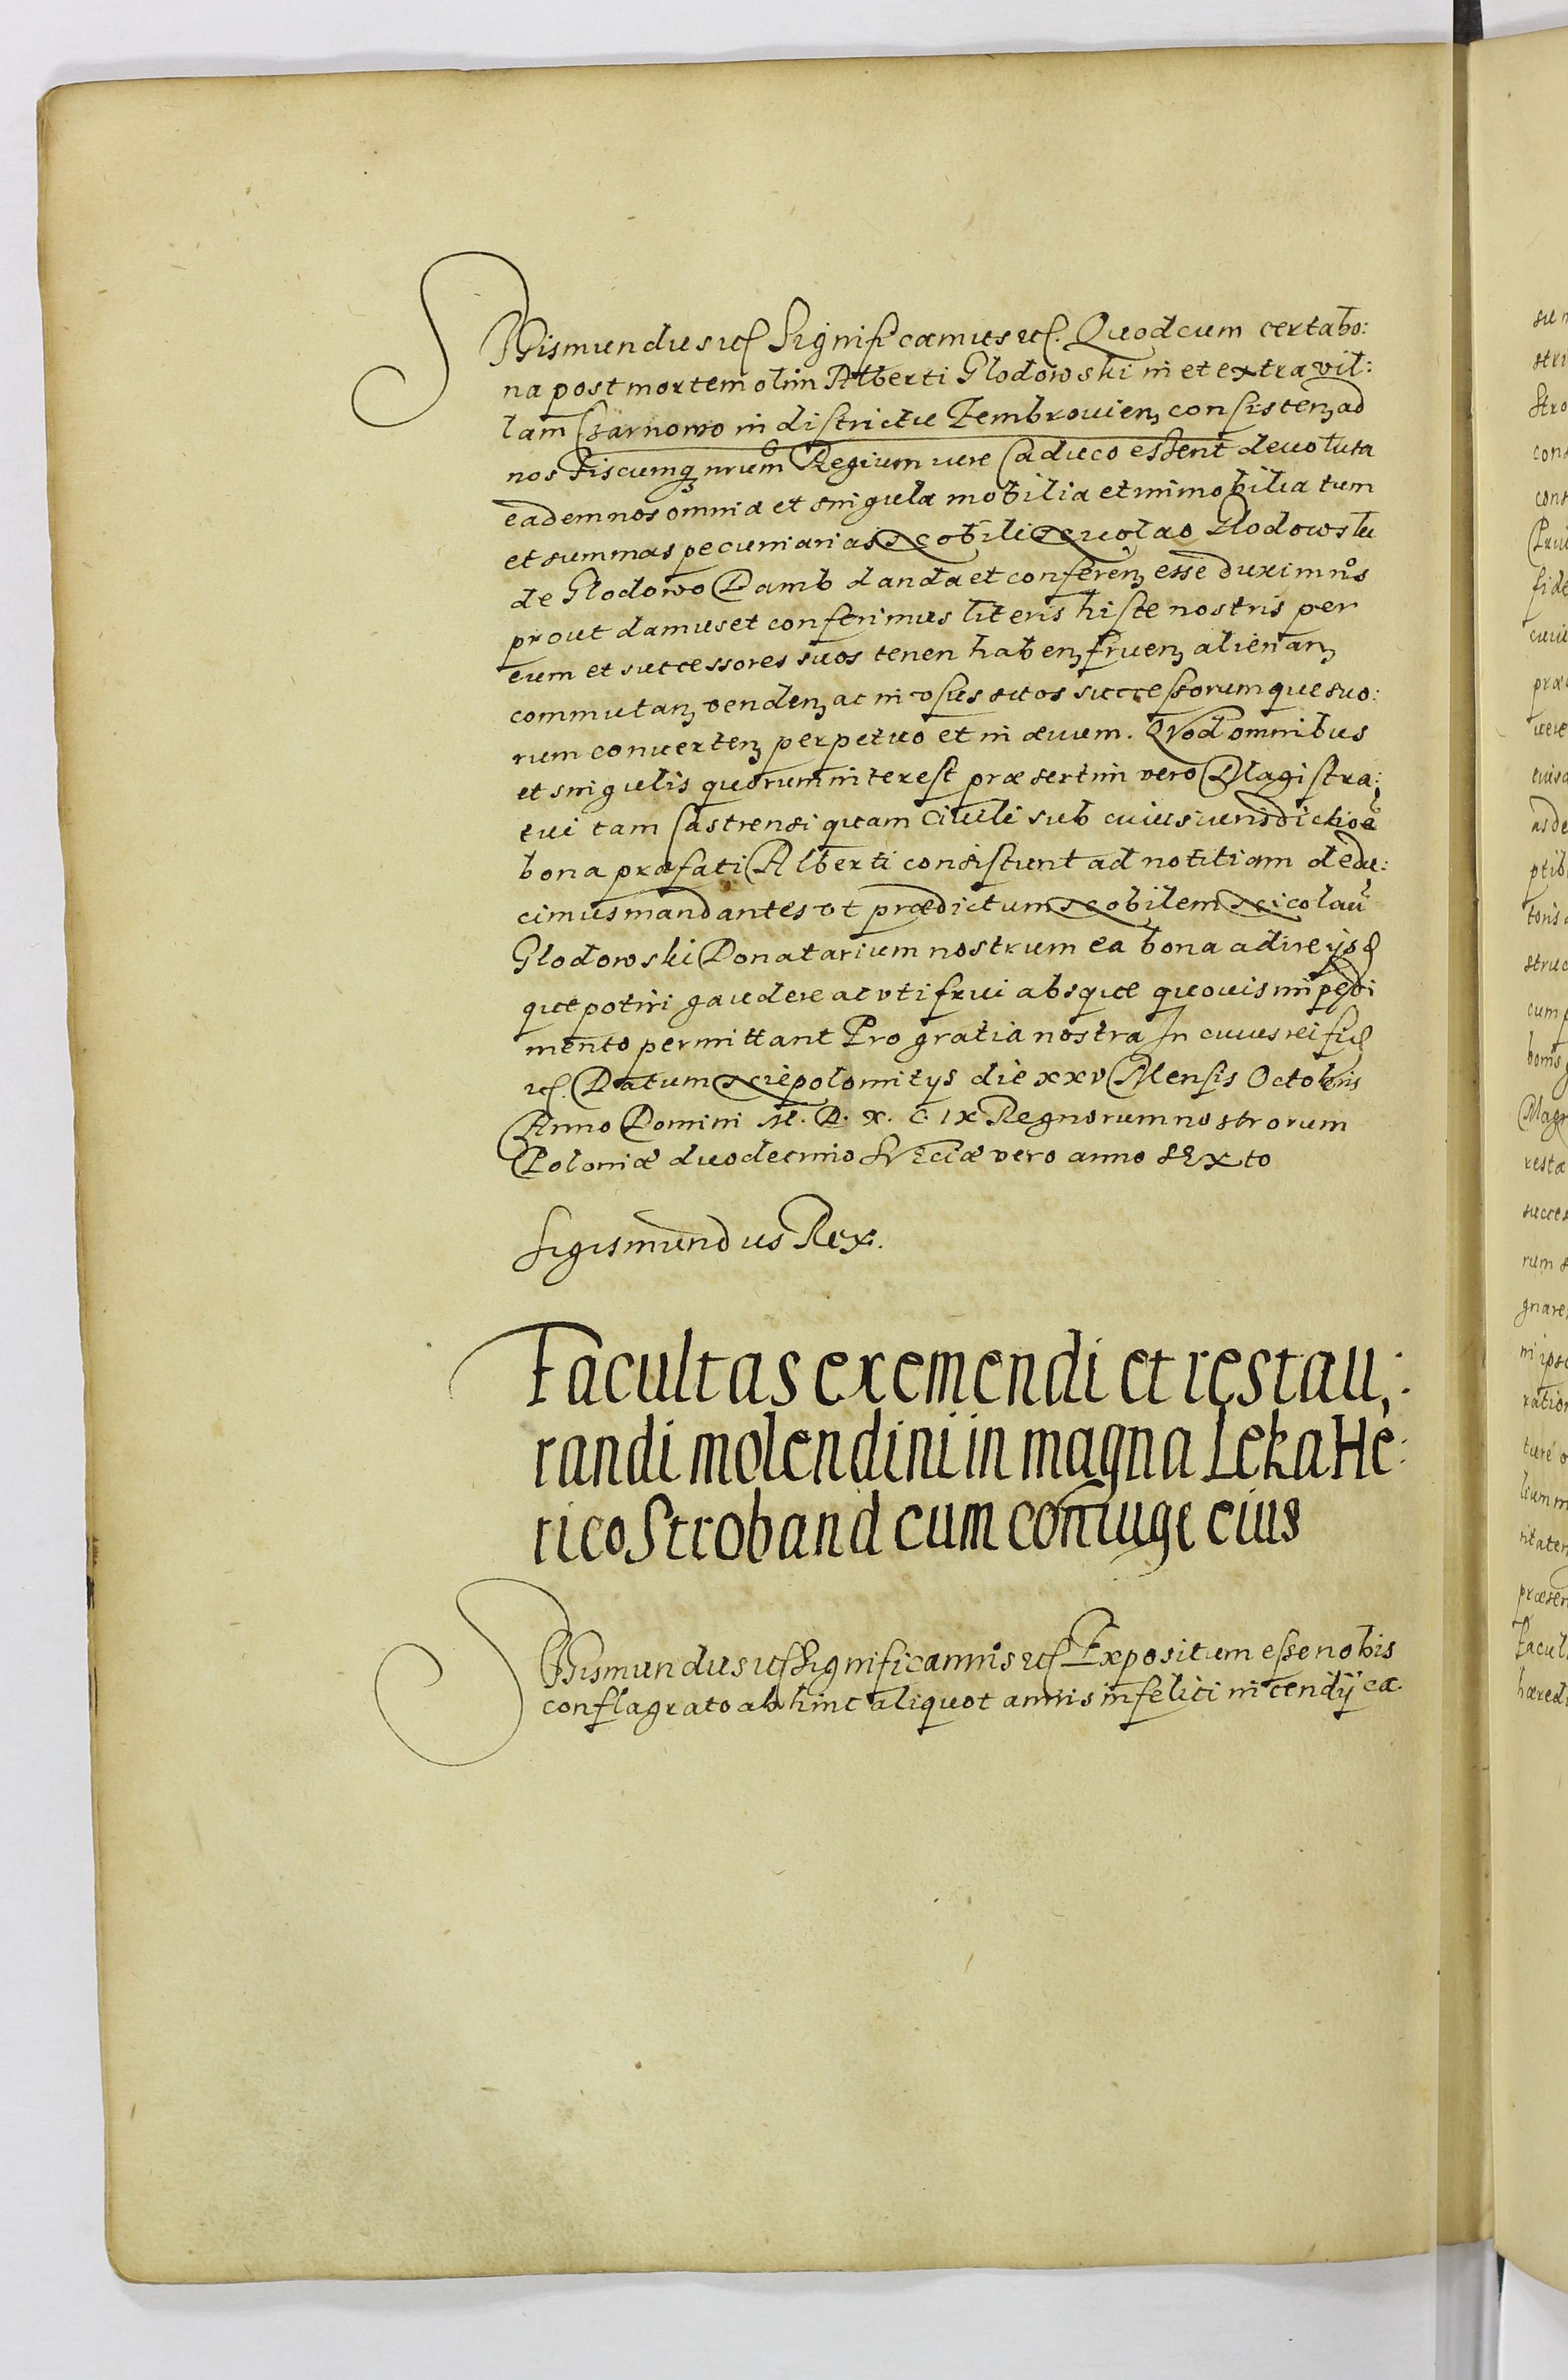 SIGismundus etc Significamus etc. Quod cum certa bo:
na post mortem olim Alberti Glodowski in et extra vil:
lam Czarnowo in districtu Zembrouien consisten ad
nos Fiscumq nrum Regium iure Caduco essent deuoluta
eadem nos omnia et singula mobilia et inmobilia tum
et summas pecuniarias Nobili Nicolao Glodowski
de Glodowo Damb danda et conferen esse duximus
prout damus et conferimus literis hisce nostris per
eum et successores suos tenen haben fruen alienan
commutan venden ac in vsus suos successorumque suo:
rum conuerten perpetuo et in æuum. Quod omnibus
et singulis quorum interest præsertim vero Magistra:
tui tam Castrensi quam Ciuili sub cuius iurisdictioe
bona præfati Alberti consistunt ad notitiam dedu:
cimus mandantes vt prædictum Nobilem Nicolau
Glodowski Donatarium nostrum ea bona adire ijsd
que potiri gaudere ac vti frui absque quouis impedi
mento permittant Pro gratia nostra In cuius rei fid
etc. Datum Niepolomitys die xxv Mensis Octobris
Anno Domini M. D. X. C. IX Regnorum nostrorum
Poloniæ duodecimo Sueciæ vero anno sexto
Sigismundus Rex.
Facultas exemendi et restau:
randi molendini in magna Leka He:
rico Stroband cum coniuge eius
SIGismundus etc Significamus etc Expositum esse nobis
conflagrato ab hinc aliquot annis infelici incendij ca